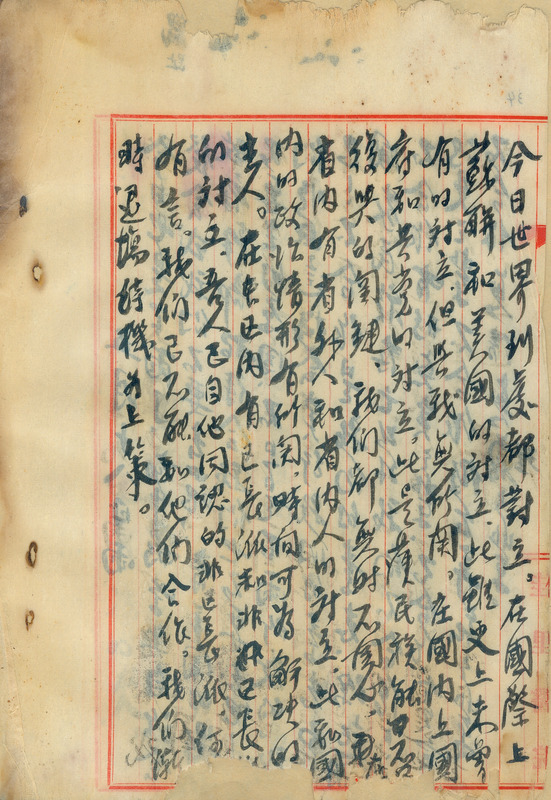 今日世界到處都對立。在國際上
蘇聯和美國的對立、此雖史上未曾
有的對立、但與我無所關。在國內上國
府和共党的對立。此是漢民族能否
復興的關鍵、我们都無時不關心、再
省內有省外人和省內人的對立、此和國
內的政治情形有所關、時间可為解決的
主人。在長以內有已長派和非已長
的對立、吾人已自他同認的非已長派、任
有言。我们已不能和他们合作。我们
時退場待機為上策。
34